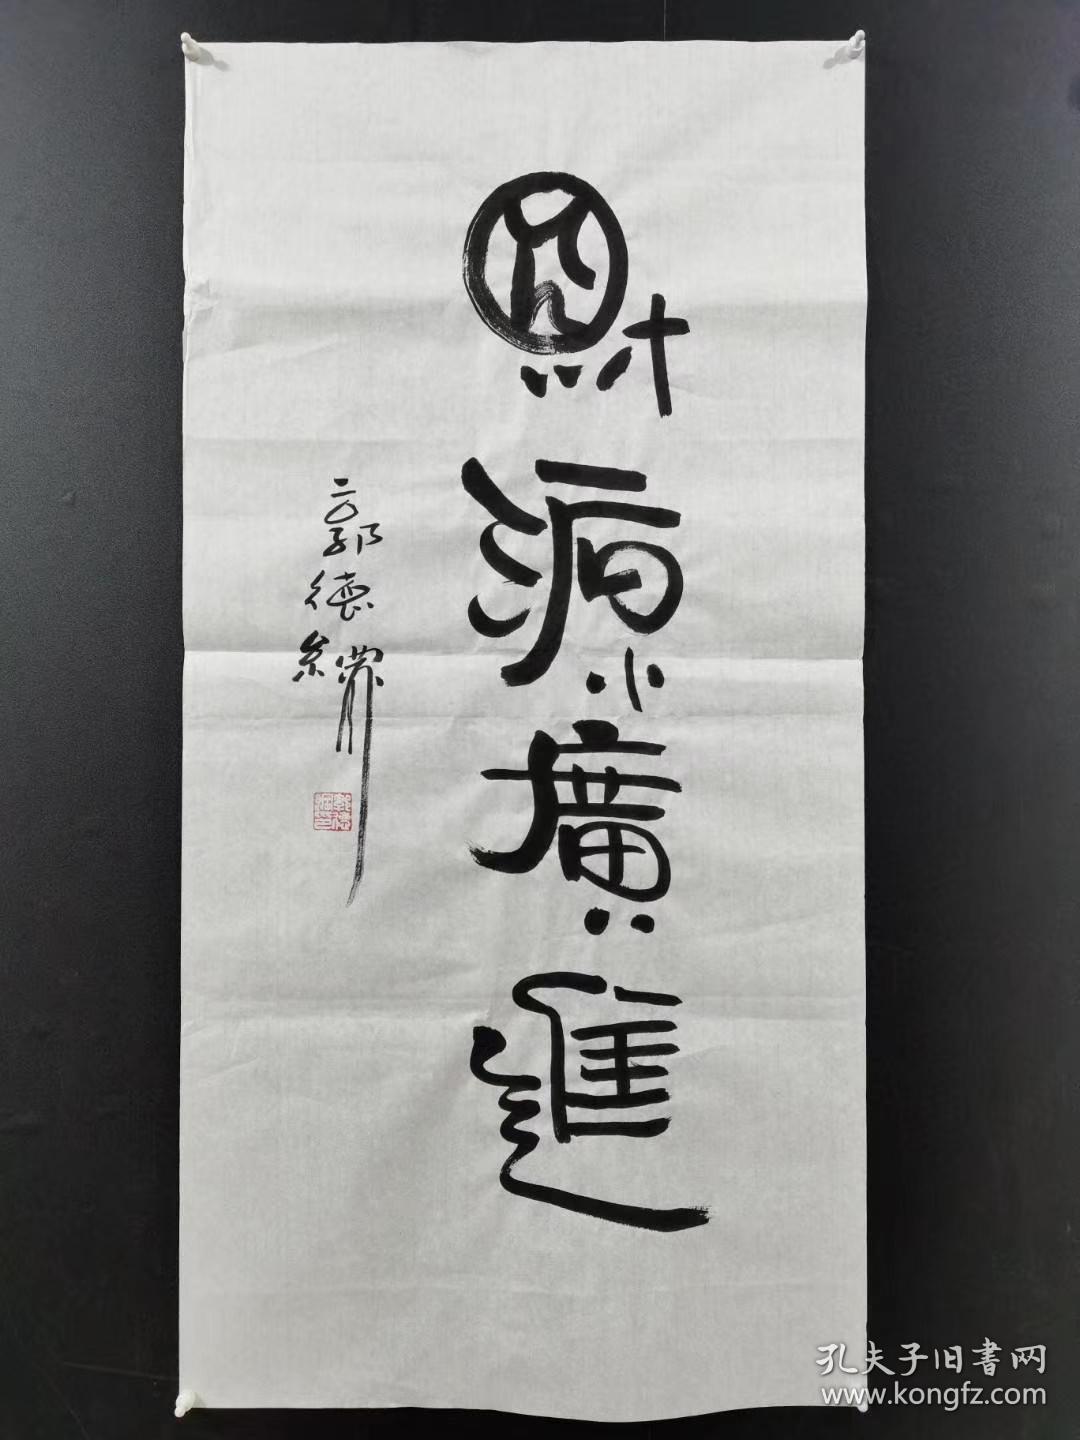 財源廣進
郭德綱
孔夫子旧書网
www.kongfz.com